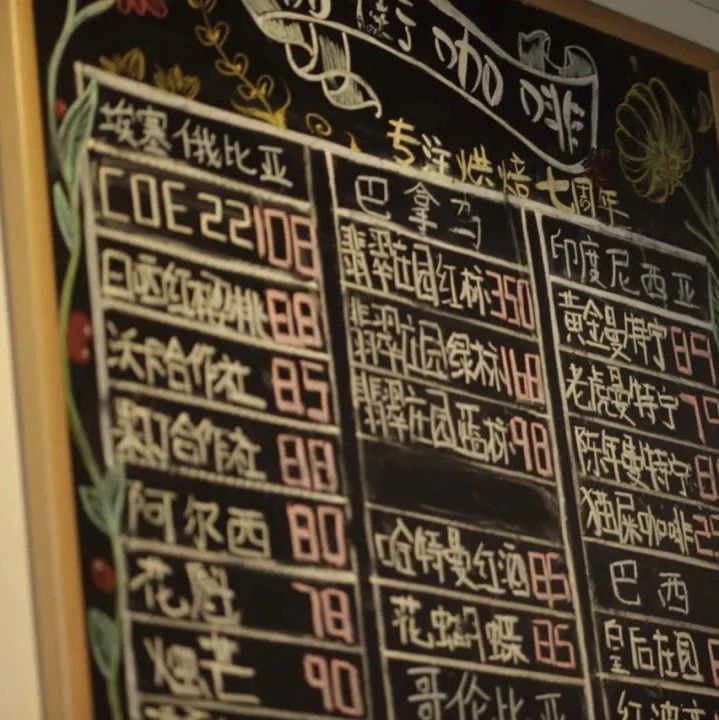 咖啡
专注烘焙七周年
埃塞俄比亚
COE 22 108
日晒红樱桃 88
沃卡合作社 85
合作社 88
阿尔西 80
花魁 78
烟芒 90
巴拿马
翡翠庄园红标 350
翡翠庄园绿标 168
翡翠庄园蓝标 98
哈特曼红酒 85
花蝴蝶 85
哥伦比亚
印度尼西亚
黄金曼特宁 89
老虎曼特宁
陈年曼特宁
猫屎咖啡
巴西
皇后庄园